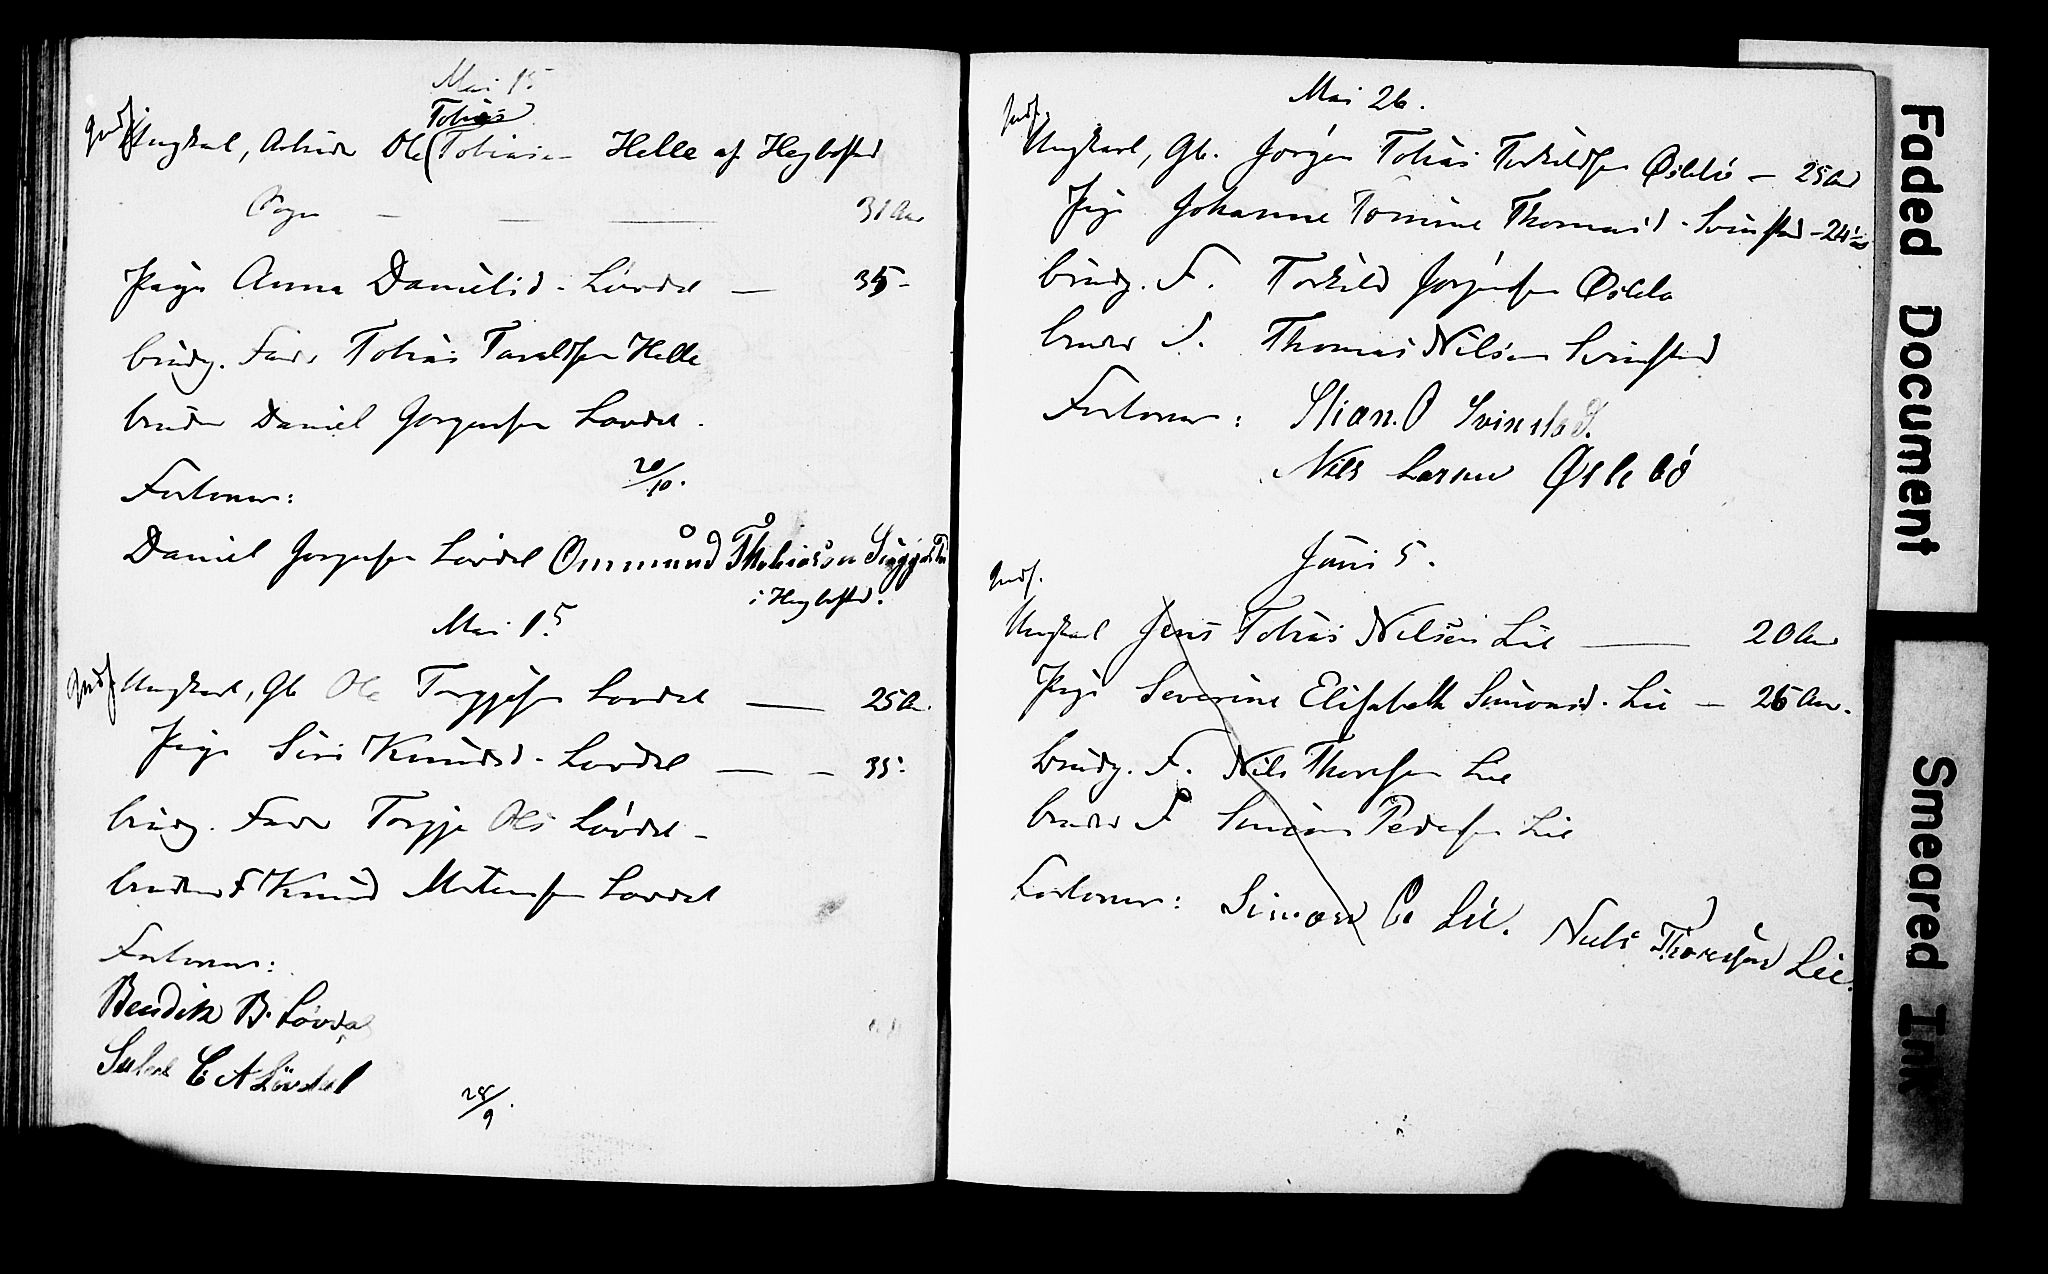 Mai 15
Tobias
Indf. Ungkarl, Arbeider Ole (Tobiasen Helle af Hegbostad
Sogn — — — 31 Aar
Pige Anna Danielsd. Løvdal — 35 -
brudg. Fader Tobias Taraldsen Helle
bruden Daniel Jørgensen Løvdal.
20/10.
Forlover:
Daniel Jørgensen Løvdal Ommund Thobiassen
i Hegbostad.
Mai 15
Indf. Ungkarl, Gb Ole Torgjesen Løvdal — 25 A.
Pige Siri Knudsd. Løvdal — — 35.
brudg. Fader Torgje Ols Løvdal -
brudens F Knud Løvdal
Forlover:
Bendik B. Løvdal
C A Løvdal
28/9.
Mai 26.
Indf.
Ungkarl, Gb. Jørgen Tobias Torkildsen Øslebø — 25 Aar
Pige Johanne Tomine Thomasd. Svinstad - 24 1/2
brudg. F. Torkild Jørgensen Øslebø
brudens F. Thomas Nilsen Svinstad
Forlover: Stian. O Svinstad.
Nils Larsen Øslebø
Juni 5.
Indf.
Ungkarl Jens Tobias Nilsen Lie — 20 Aar
Pige Severine Elisabeth Simonsd. Lie — 26 Aar.
brudg. F. Nils Thoresen Lie
brudens F Simon Pedersen Lie
Forlover: Simon P Lie. Niels Thoresen Lie.
Faded Document
Smeared Ink